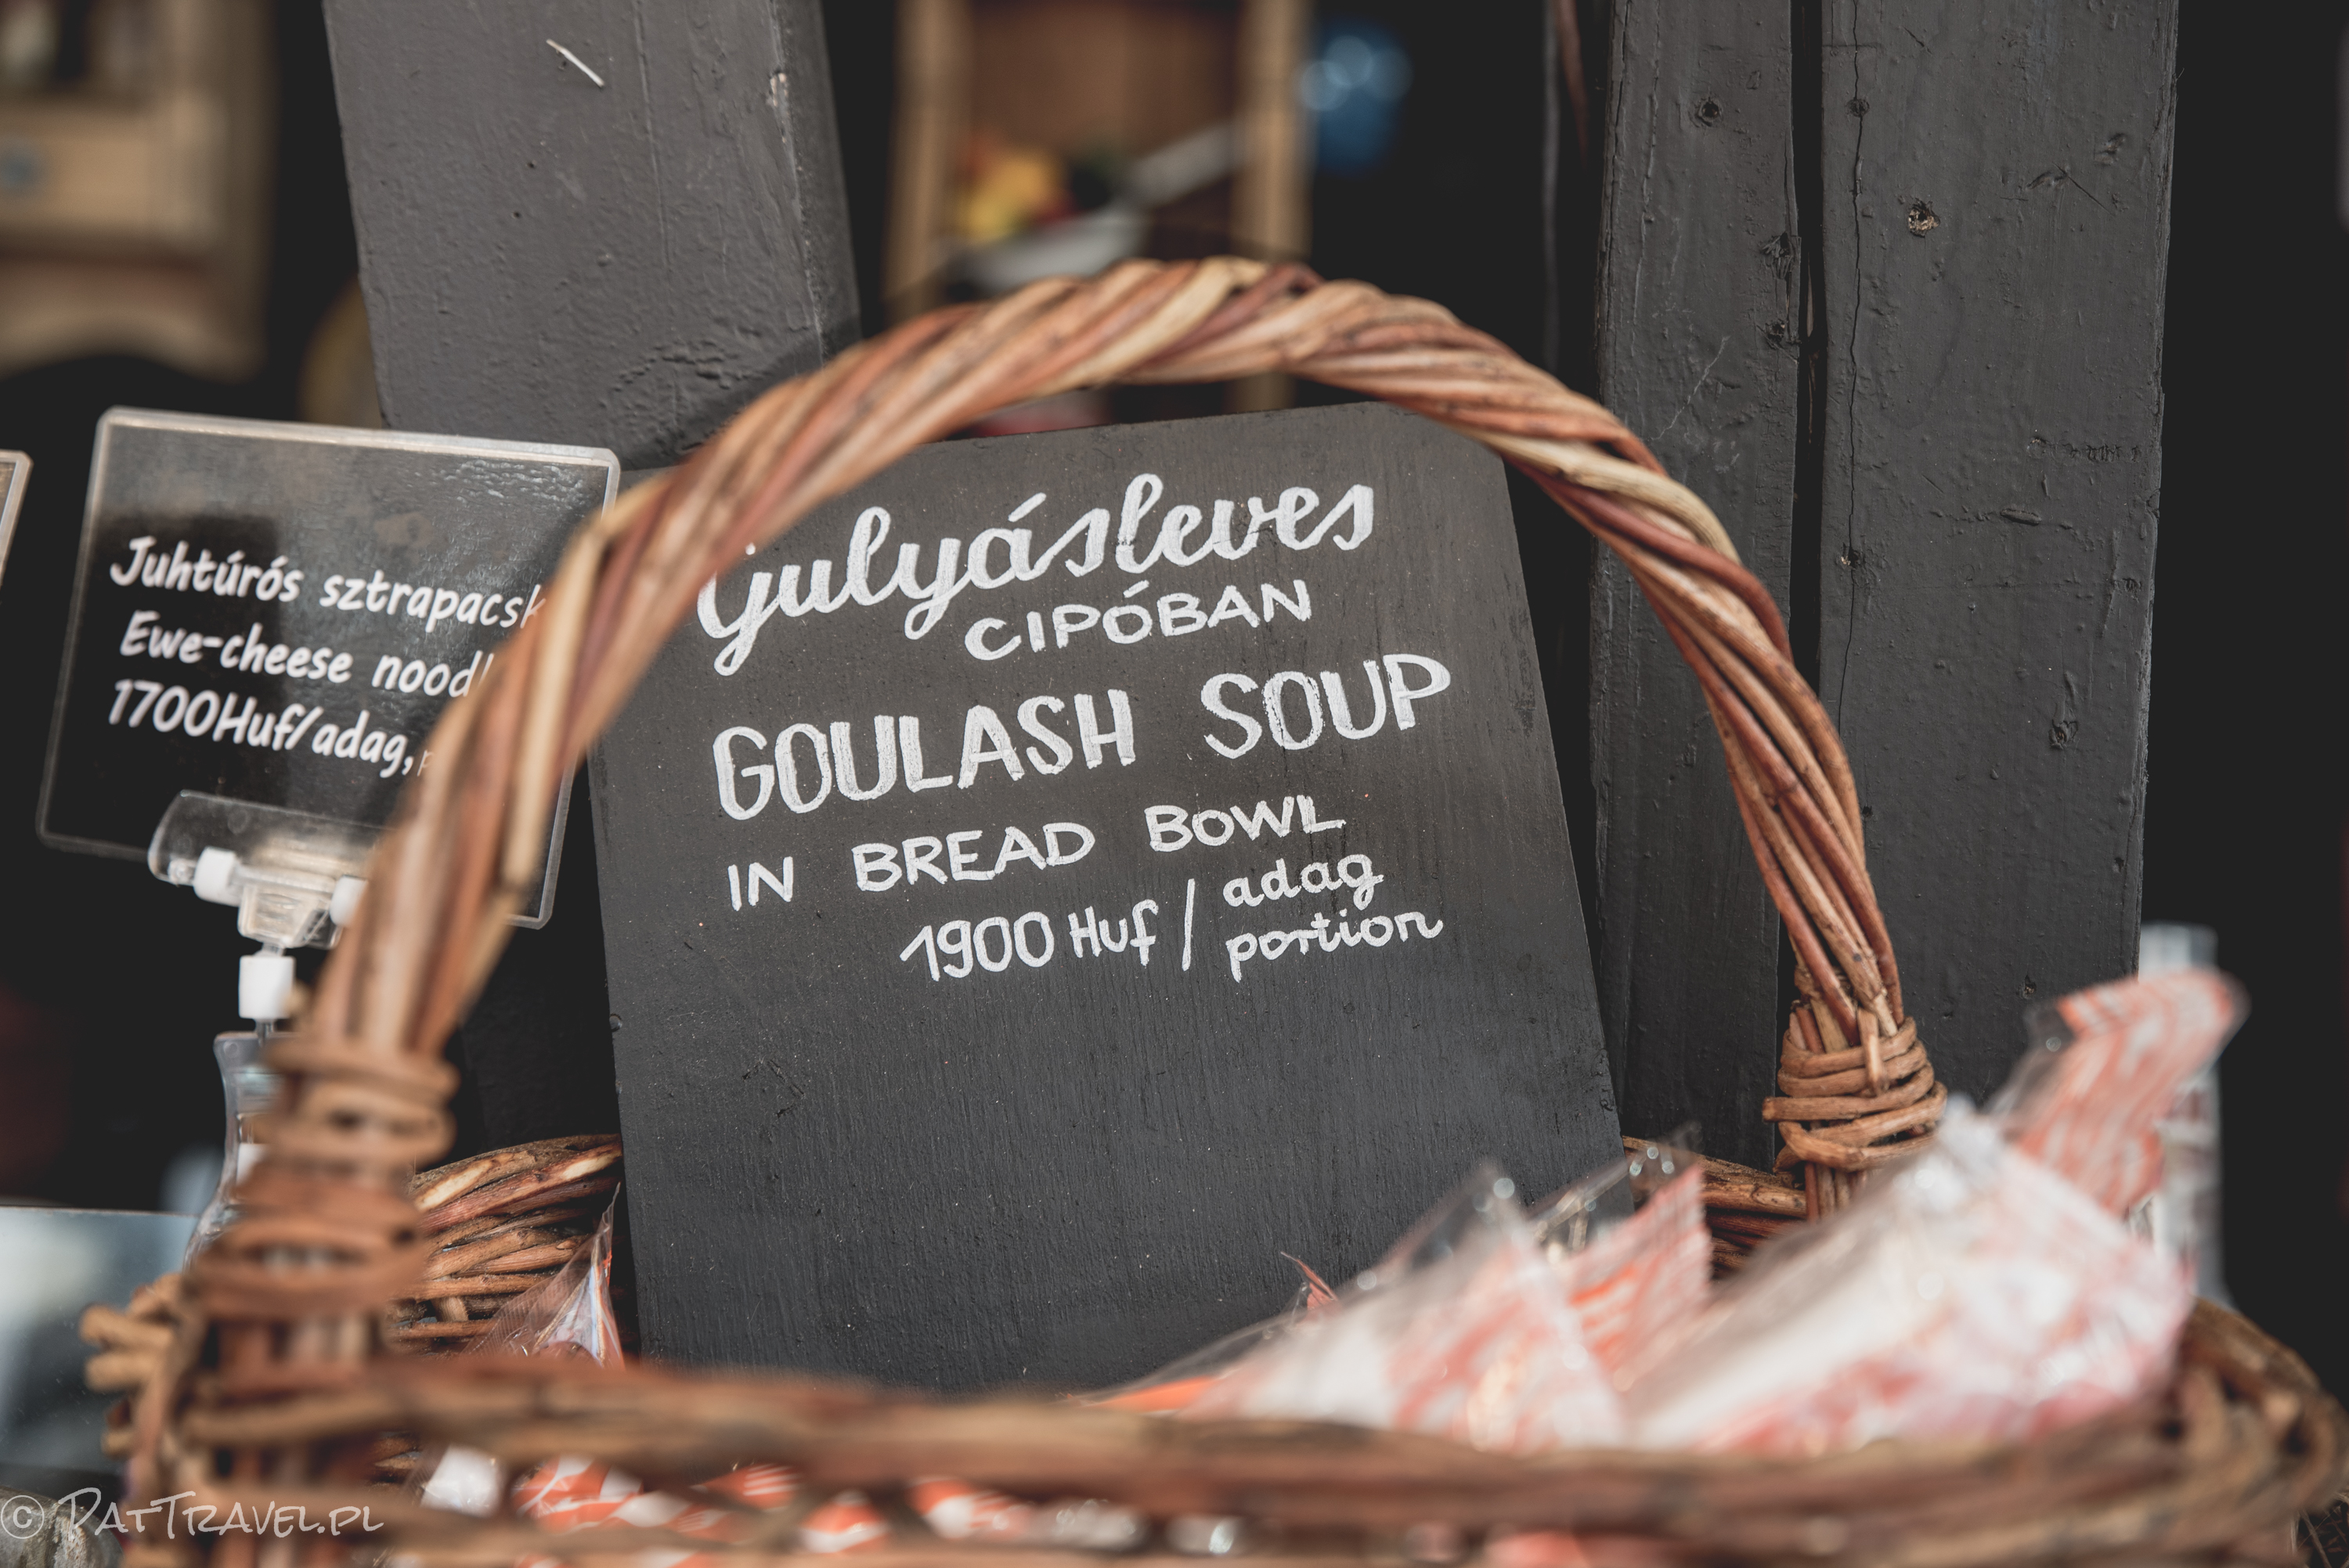 Juhtúrós
Ewe-cheese
1700Huf/adag,
Gulyásleves
CIPÓBAN
GOULASH SOUP
IN BREAD BOWL
1900 Huf / adag
portion
© PATTRAVEL.PL